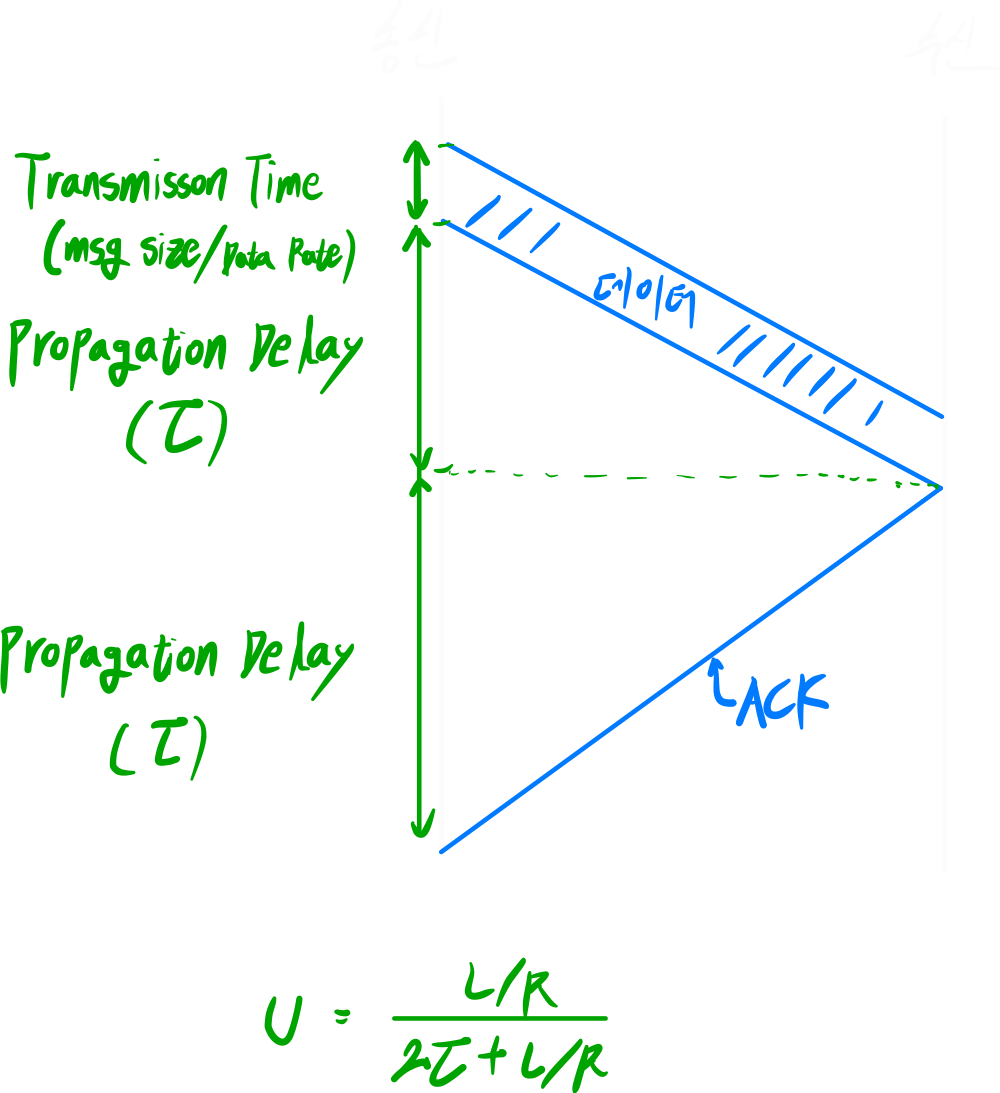 송신 수신
Transmisson Time
(msg size/Data Rate)
데이터
Propagation Delay
(τ)
Propagation Delay
(τ)
ACK
U = L/R
2τ + L/R